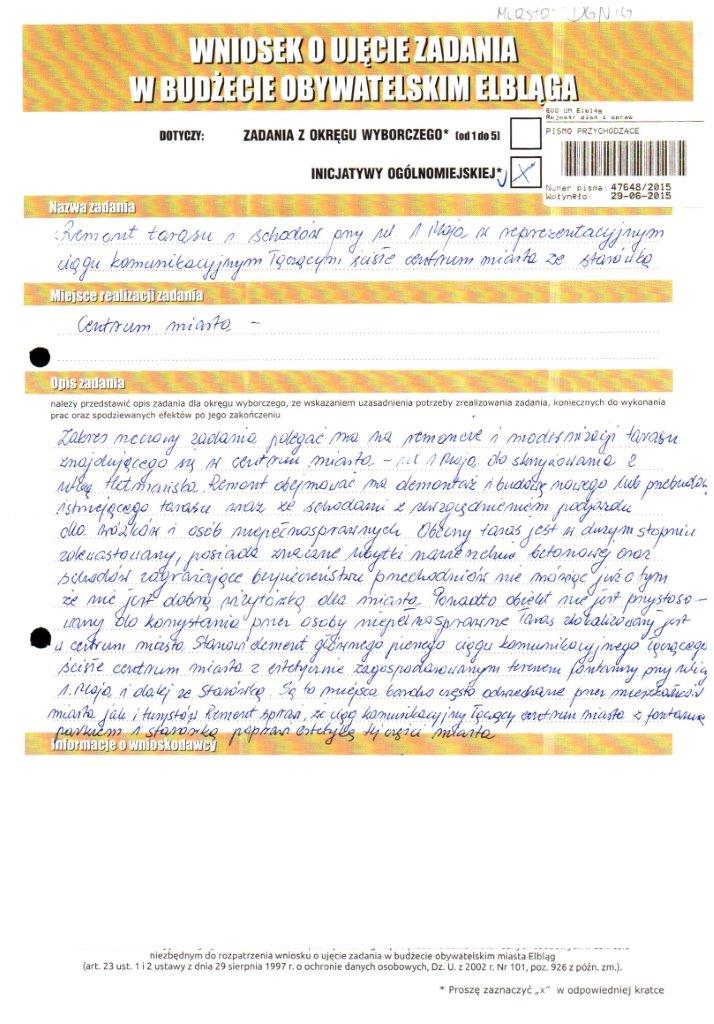 Miasto - DGNiG
WNIOSEK O UJĘCIE ZADANIA
W BUDŻECIE OBYWATELSKIM ELBLĄGA
EOD UM Elbląg
Rejestr pism i spraw
DOTYCZY: ZADANIA Z OKRĘGU WYBORCZEGO* (od 1 do 5)
PISMO PRZYCHODZĄCE
INICJATYWY OGÓLNOMIEJSKIEJ* x
Numer pisma: 47648/2015
Wpłynęło: 29-06-2015
Nazwa zadania
Remont tarasu i schodów przy ul 1 Maja w reprezentacyjnym
ciągu komunikacyjnym łączącym ściśle centrum miasta ze starówką
Miejsce realizacji zadania
Centrum miasta -
Opis zadania
należy przedstawić opis zadania dla okręgu wyborczego, ze wskazaniem uzasadnienia potrzeby zrealizowania zadania, koniecznych do wykonania
prac oraz spodziewanych efektów po jego zakończeniu
Zakres rzeczowy zadania polegać ma na remoncie i modernizacji tarasu
znajdującego się w centrum miasta - ul 1 Maja, do skrzyżowania z
ulicą Hetmańską. Remont obejmować ma demontaż i budowę nowego lub przebudowę
istniejącego tarasu wraz ze schodami z uwzględnieniem podjazdu
dla wózków i osób niepełnosprawnych. Obecny taras jest w dużym stopniu
zdewastowany, posiada znaczne ubytki nawierzchni betonowej oraz
schodów zagrażające bezpieczeństwu przechodniów nie mówiąc już o tym
że nie jest dobrą wizytówką dla miasta. Ponadto obiekt nie jest przystoso-
wany do korzystania przez osoby niepełnosprawne Taras zlokalizowany jest
w centrum miasta Stanowi element głównego pieszego ciągu komunikacyjnego łączącego
ściśle centrum miasta z estetycznie zagospodarowanym terenem fontanny przy ulicy
1 Maja i dalej ze Starówką. Są to miejsca bardzo często odwiedzane przez mieszkańców
miasta jak i turystów Remont sprawi, że ciąg komunikacyjny łączący centrum miasta z fontanną
parkiem i starówką poprawi estetykę tej części miasta
Informacje o wnioskodawcy
niezbędnym do rozpatrzenia wniosku o ujęcie zadania w budżecie obywatelskim miasta Elbląg
(art. 23 ust. 1 i 2 ustawy z dnia 29 sierpnia 1997 r. o ochronie danych osobowych, Dz. U. z 2002 r. Nr 101, poz. 926 z późn. zm.).
* Proszę zaznaczyć „x” w odpowiedniej kratce